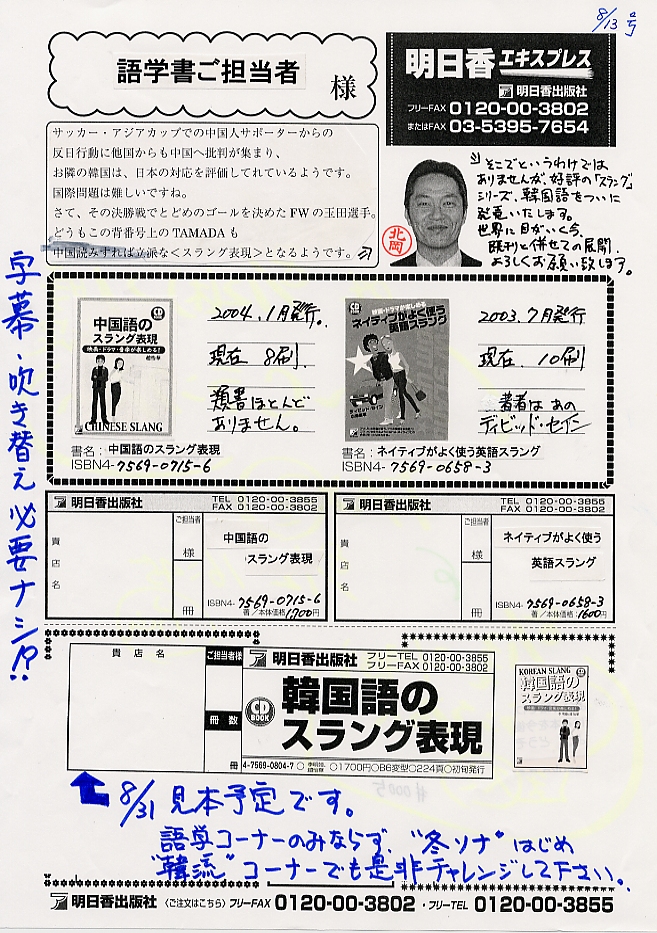 8/13号
語学書ご担当者
様
明日香エキスプレス
明日香出版社
フリーFAX 0120-00-3802
またはFAX 03-5395-7654
サッカー・アジアカップでの中国人サポーターからの
反日行動に他国からも中国へ批判が集まり、
お隣の韓国は、日本の対応を評価してれているようです。
国際問題は難しいですね。
さて、その決勝戦でとどめのゴールを決めたFWの玉田選手。
どうもこの背番号上のTAMADAも
中国読みすれば立派な<スラング表現>となるようです。
そこでというわけでは
ありませんが、好評の「スラング」
シリーズ、韓国語をついに
発売いたします。
世界に目がいく今、
既刊と併せての展開、
よろしくお願い致します。
北岡
字幕・吹き替え必要ナシ!?
中国語の
スラング表現
映画・ドラマ・音楽が楽しめる!
CHINESE SLANG
2004.1月発行。
現在 8刷
類書ほとんど
ありません。
書名:中国語のスラング表現
ISBN4-7569-0715-6
映画・ドラマが楽しめる
ネイティブがよく使う
英語スラング
2003.7月発行
現在、10刷
著者は あの
デイビッド・セイン
書名:ネイティブがよく使う英語スラング
ISBN4-7569-0658-3
明日香出版社
TEL 0120-00-3855
FAX 0120-00-3802
貴店名
ご担当者
様
冊
中国語の
スラング表現
ISBN4-7569-0715-6
著/本体価格1,700円
明日香出版社
TEL 0120-00-3855
FAX 0120-00-3802
貴店名
ご担当者
様
冊
ネイティブがよく使う
英語スラング
ISBN4-7569-0658-3
著/本体価格1600円
貴店名
ご担当者様
冊数
冊
明日香出版社
フリーTEL 0120-00-3855
フリーFAX 0120-00-3802
CD BOOK
韓国語の
スラング表現
4-7569-0804-7○
○1700円○B6変型○224頁○初旬発行
KOREAN SLANG
韓国語の
スラング表現
8/31見本予定です。
語学コーナーのみならず、"冬ソナ"はじめ
"韓流"コーナーでも是非チャレンジして下さい。
明日香出版社 〈ご注文はこちら〉フリーFAX 0120-00-3802 ・フリーTEL 0120-00-3855